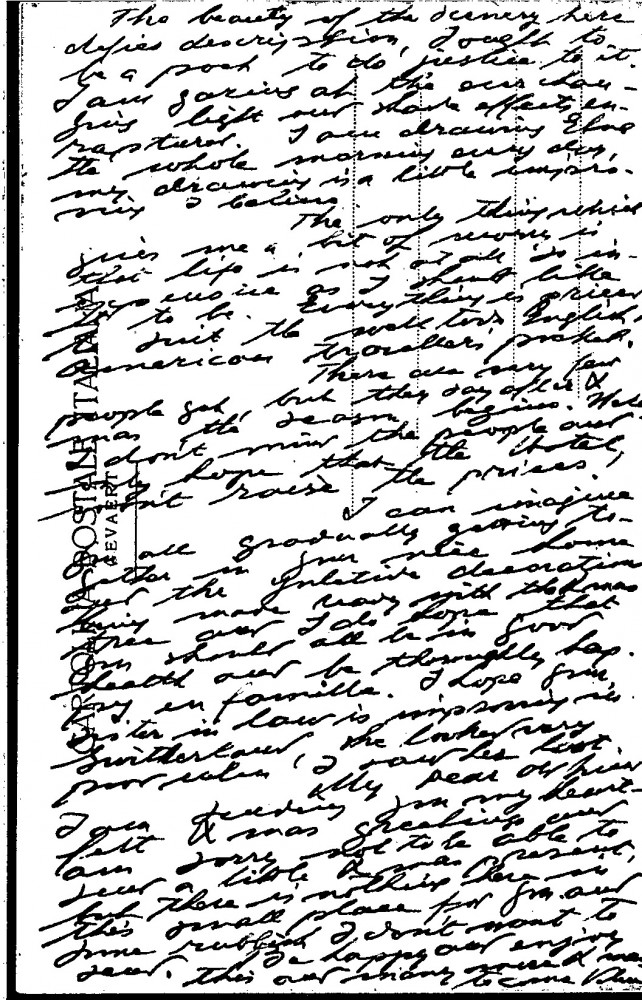 The beauty of the scenery here
defies description, I ought to
be a poet to do justice to it.
I am gazing at the ever chan-
ging light and shade effects en-
raptured. I am drawing
the whole morning every day,
my drawing is a little impro-
ving I believe.
The only thing which
gives me a bit of is
that life is not at all so in-
expensive as I should like
it to be. Everything is priced
to suit the well to do English
American travellers pocket.
There are very few
people yet, but they say after X
mas the season begins. Well
I don't mind the people and
only hope that the Hotel,
don't raise the prices,
I can imagine
you all gradually getting to-
gether in your nice home
and the festive decoration
being made ready with the Xmas
tree and I do hope that
you should all be in good
health and be thoroughly hap-
py en famille. I hope your
sister in law is improving in
Switzerland, she looked very
poor when I saw her last.
My dear old
I am sending you my heart-
felt Xmas greetings and
am sorry not to be able to
send a little Xmas present,
but there is nothing here in
this small place for you and
some rubbish I don't want to
send. Be happy and enjoy
this and many more X mas
to come
CARTOLINA POSTALE ITALIANA
GEVAERT